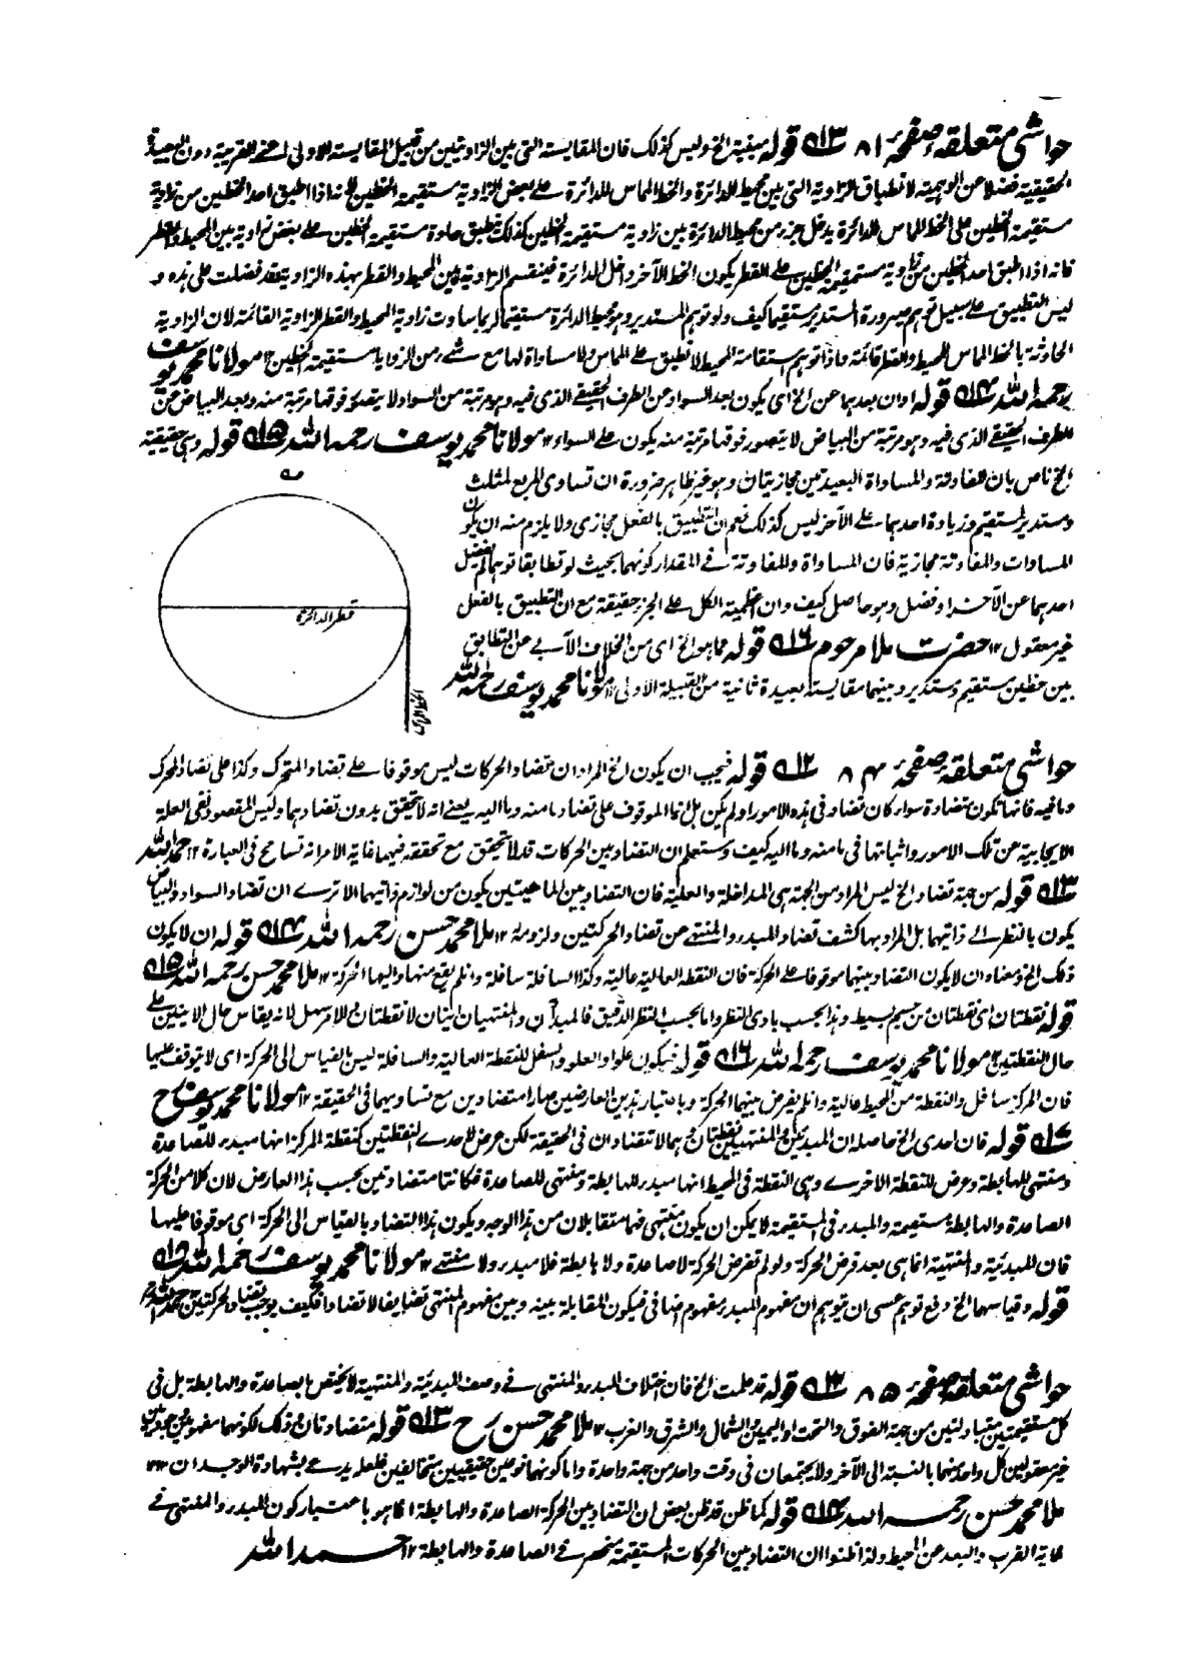 حواشی متعلقہ صفحہ ٨١ قوله مبنية الخ وليس كذلك فان المقايسة التى بين الزاويتين من قبيل المقايسة الاولى اعنى القريبة دون البعيدة
الحقيقية فضلا عن الوهمية لانطباق الزاوية التى بين محيط الدائرة والخط المماس للدائرة على بعض الزاوية مستقيمة الخطين فانه اذا طبق احد الخطين من زاوية
مستقيمة الخطين على الخط المماس للدائرة يدخل جزء من محيط الدائرة بين زاوية مستقيمة الخطين كذلك تطبيق حادة مستقيمة الخطين على بعض زاوية بين المحيط والقطر
فانه اذا طبق احد الخطين من زاوية مستقيمة الخطين على القطر يكون الخط الآخر داخل الدائرة فينقسم الزاوية بين المحيط والقطر بهذه الزاوية فقد فضلت على هذه و
ليس التطبيق على سبيل توهم صيرورة المستدير مستقيما كيف ولو توهم المستدير وهو محيط الدائرة مستقيما لربما ساوت زاوية المحيط والقطر الزاوية القائمة لان الزاوية
الحادثة بالخط المماس للمحيط والقطر قائمة فاذا توهم استقامة المحيط لانطبق على المماس ولا مساواة لها مع شئ من الزوايا مستقيمة الخطين ١٢ مولانا محمد يوسف
رحمه الله قوله اوان بعدها عن الخ اى يكون بعد السواد عن الطرف الحقيقى الذى فيه وهو مرتبة من السواد لا يتصور فوقها مرتبة منه وبعد البياض عن
الطرف الحقيقى الذى فيه وهو مرتبة من البياض لا يتصور فوقها مرتبة منه يكون على السواء ١٢ مولانا محمد يوسف رحمه الله قوله وهى حقيقية
الخ ناص بان المفاوتة والمساواة البعيدتين مجازيتان وهو غير ظاهر ضرورة ان تساوى المربع لمثلث
ومستدير لمستقيم وزيادة احدهما على الآخر ليس كذلك نعم ان التطبيق بالفعل مجازى ولا يلزم منه ان يكون
المساوات والمفاوتة مجازية فان المساواة والمفاوتة فى المقدار كونهما بحيث لو تطابقا توهما لم يفضل
احدهما عن الآخر او فضل وهو حاصل كيف وان اعظمية الكل على الجزء حقيقة مع ان التطبيق بالفعل
غير معقول ١٢ حضرت ملا مرحوم قوله مما هو الخ اى من الخلاف الآبى عن التطابق
بين خطين مستقيم ومستدير وبينهما مقايسة بعيدة ثانية من القبيلة الاولى ١٢ مولانا محمد يوسف رحمه الله
قطر الدائرة
الخط المماس
حواشی متعلقہ صفحہ ٨٤ قوله فيجب ان يكون الخ المراد ان تضاد الحركات ليس موقوفا على تضاد المتحرك وكذا على تضاد المحرك
وما فيه فانها تكون متضادة سواء كان تضاد فى هذه الامور او لم يكن بل انما الموقوف على تضاد ما منه وما اليه يعنى انه لا يتحقق بدون تضادهما وليس المقصود نفى العلة
الايجابية عن تلك الامور واثباتها فى ما منه وما اليه كيف وستعلم ان التضاد بين الحركات قد لا يتحقق مع تحققه فيهما غاية الامر انه تسامح فى العبارة ١٢ حمد الله
قوله من جهة تضاد الخ ليس المراد من الجهة هى المداخلة والعلية فان التضاد بين الماهيتين يكون من لوازم ذاتيهما الا ترى ان تضاد السواد والبياض
يكون بالنظر الى ذاتيهما بل المراد بها كشف تضاد المبدء والمنتهى عن تضاد الحركتين ولزومه ١٢ ملا محمد حسن رحمه الله قوله ان لا يكون
ذلك الخ معناه ان لا يكون التضاد بينهما موقوفا على الحركة فان النقطة العالية عالية وكذا السافلة سافلة وان لم يقع منها واليها الحركة ١٢ ملا محمد حسن رحمه الله
قوله نقطتان اى نقطتان من جسم بسيط وهذا بحسب بادى النظر واما بحسب النظر الدقيق فالمبدآن والمنتهيان اينان لا نقطتان والامر سهل لانه يقاس حال الاينين على
حال النقطتين ١٢ مولانا محمد يوسف رحمه الله قوله فيكون علوا والعلو والسفل للنقطة العالية والسافلة ليس بالقياس الى الحركة اى لا يتوقف عليها
فان المركز سافل والنقطة من المحيط عالية وان لم يفرض بينهما الحركة وباعتبار هذين العارضين صارا متضادين مع تساويهما فى الحقيقة ١٢ مولانا محمد يوسف رح
قوله فان احدى الخ حاصله ان المبدئين والمنتهيين نقطتان وهما لا تتضادان فى الحقيقة لكن عرض لاحدى النقطتين كنقطة المركز انها مبدء للصاعدة
ومنتهى للهابطة وعرض للنقطة الاخرى وهى النقطة فى المحيط انها مبدء للهابطة ومنتهى للصاعدة فكانتا متضادتين بحسب هذا العارض لان كلا من الحركة
الصاعدة والهابطة مستقيمة والمبدء فى المستقيمة لا يمكن ان يكون منتهى فهما متقابلان من هذا الوجه ويكون هذا التضاد بالقياس الى الحركة اى موقوفا عليها
فان المبدئية والمنتهية انما هى بعد فرض الحركة ولو لم تفرض الحركة لا صاعدة ولا هابطة فلا مبدء ولا منتهى ١٢ مولانا محمد يوسف رحمه الله
قوله وقياسهما الخ دفع توهم عسى ان يتوهم ان مفهوم المبدء مفهوم اضافى فيكون المقابلة بينه وبين مفهوم المنتهى تضايفا لا تضادا فكيف يوجب تضاد الحركتين ١٢ حمد الله
حواشی متعلقہ صفحہ ٨٥ قوله قد علمت الخ فان اختلاف المبدء والمنتهى فى وصف المبدئية والمنتهية لا يختص بالصاعدة والهابطة بل فى
كل مستقيمتين متبادلتين من جهة الفوق والتحت او اليمين والشمال والشرق والغرب ١٢ ملا محمد حسن رح قوله متضادتان وذلك لكونهما مفهومين
غير معقولين كل واحد منهما بالنسبة الى الآخر ولا يجتمعان فى وقت واحد من جهة واحدة واما كونهما نوعين حقيقيين متخالفين فلعله يدعى بشهادة الوجدان ١٢
ملا محمد حسن رحمه الله قوله كما ظن قد ظن بعض ان التضاد بين الحركة الصاعدة والهابطة انما هو باعتبار كون المبدء والمنتهى فى
غاية القرب والبعد عن المحيط ولذا ظنوا ان التضاد بين الحركات المستقيمة منحصر فى الصاعدة والهابطة ١٢ حمد الله